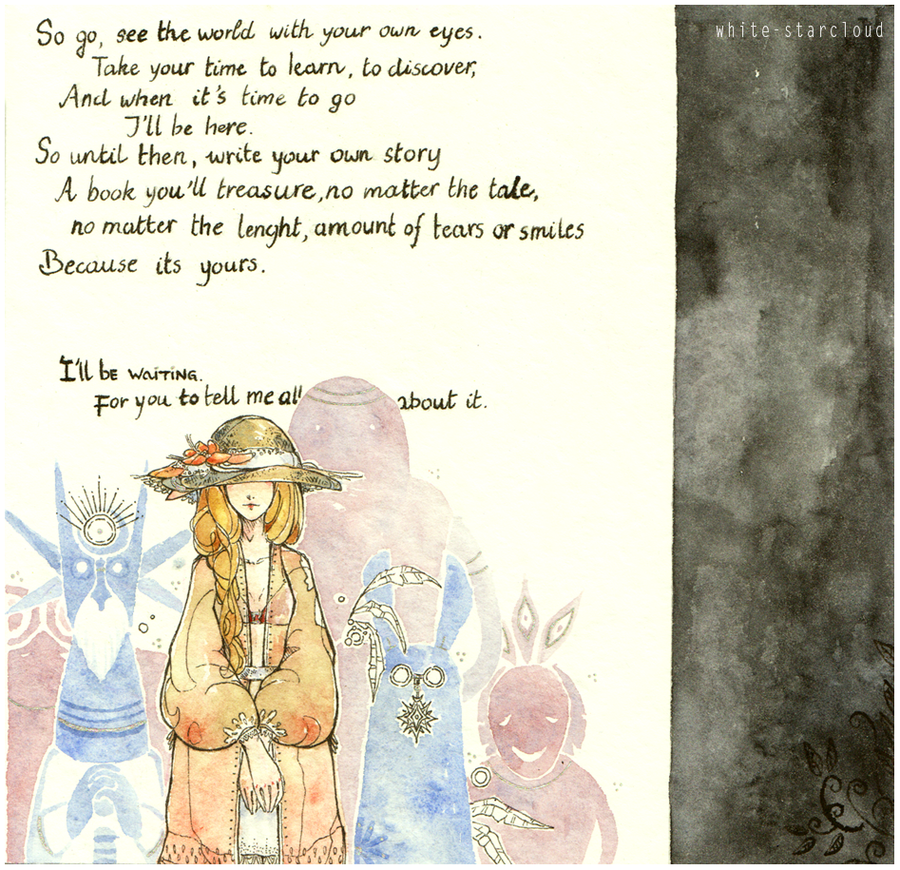 white-starcloud
So go, see the world with your own eyes.
Take your time to learn, to discover,
And when it's time to go
I'll be here.
So until then, write your own story
A book you'll treasure, no matter the tale,
no matter the lenght, amount of tears or smiles
Because its yours.
I'll be waiting.
For you to tell me all about it.